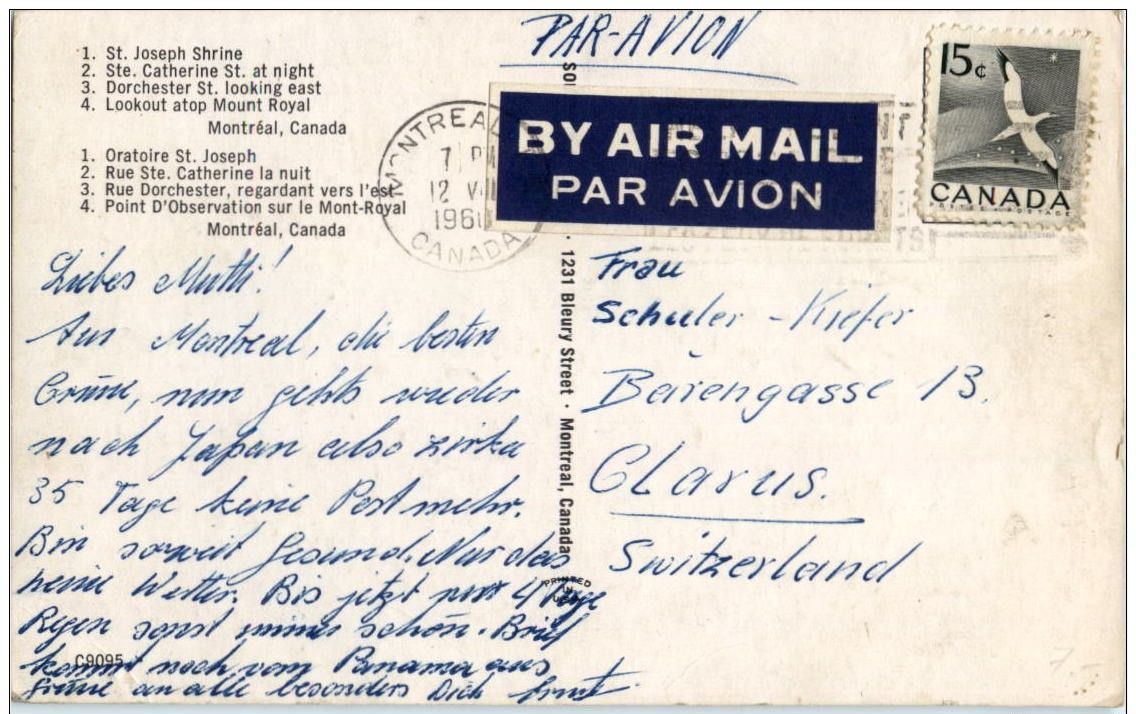 PAR-AVION
1. St. Joseph Shrine
2. Ste. Catherine St. at night
3. Dorchester St. looking east
4. Lookout atop Mount Royal
Montréal, Canada
1. Oratoire St. Joseph
2. Rue Ste. Catherine la nuit
3. Rue Dorchester, regardant vers l'est
4. Point D'Observation sur le Mont-Royal
Montréal, Canada
MONTREAL
7 PM
12 VII
196
CANADA
BY AIR MAIL
PAR AVION
15¢
CANADA
POSTES POSTAGE
Liebes Mutti!
Aus Montreal, die besten
Grüsse, nun gehts wieder
nach Japan also zirka
35 Tage keine Post mehr.
Bin soweit Gesund. Nur das
heisse Wetter. Bis jetzt nur 4 Tage
Regen sonst immer schön. Brief
kommt noch vom Panama aus
Grüsse an alle besonders Dich Ernst
C9095
1231 Bleury Street · Montreal, Canada
PRINTED
IN
Frau
Schuler-Kiefer
Bärengasse 13.
GLarus.
Switzerland
7,-